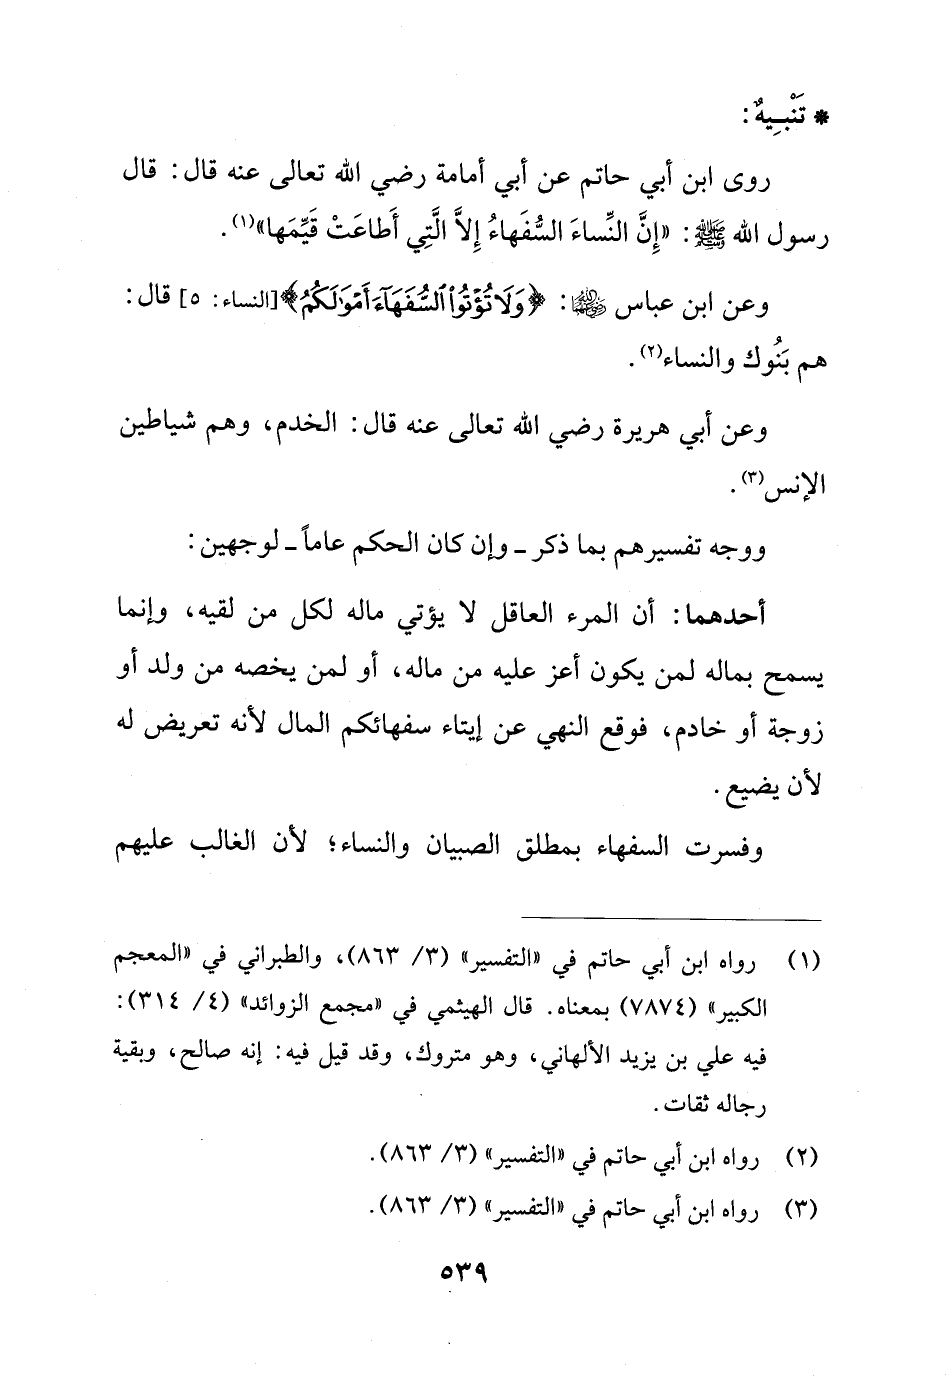 * تَنْبِيهٌ:
روى ابن أبي حاتم عن أبي أمامة رضي الله تعالى عنه قال: قال
رسول الله ﷺ: «إِنَّ النِّساءَ السُّفَهاءُ إِلاَّ الَّتِي أَطاعَتْ قَيِّمَها»(١).
وعن ابن عباس رضي الله عنهما: ﴿وَلَا تُؤْتُوا السُّفَهَاءَ أَمْوَالَكُمُ﴾[النساء: ٥] قال:
هم بَنُوك والنساء(٢).
وعن أبي هريرة رضي الله تعالى عنه قال: الخدم، وهم شياطين
الإنس(٣).
ووجه تفسيرهم بما ذكر ـ وإن كان الحكم عاماً ـ لوجهين:
أحدهما: أن المرء العاقل لا يؤتي ماله لكل من لقيه، وإنما
يسمح بماله لمن يكون أعز عليه من ماله، أو لمن يخصه من ولد أو
زوجة أو خادم، فوقع النهي عن إيتاء سفهائكم المال لأنه تعريض له
لأن يضيع.
وفسرت السفهاء بمطلق الصبيان والنساء؛ لأن الغالب عليهم
(١) رواه ابن أبي حاتم في «التفسير» (٣/ ٨٦٣)، والطبراني في «المعجم
الكبير» (٧٨٧٤) بمعناه. قال الهيثمي في «مجمع الزوائد» (٤/ ٣١٤):
فيه علي بن يزيد الألهاني، وهو متروك، وقد قيل فيه: إنه صالح، وبقية
رجاله ثقات.
(٢) رواه ابن أبي حاتم في «التفسير» (٣/ ٨٦٣).
(٣) رواه ابن أبي حاتم في «التفسير» (٣/ ٨٦٣).
٥٣٩